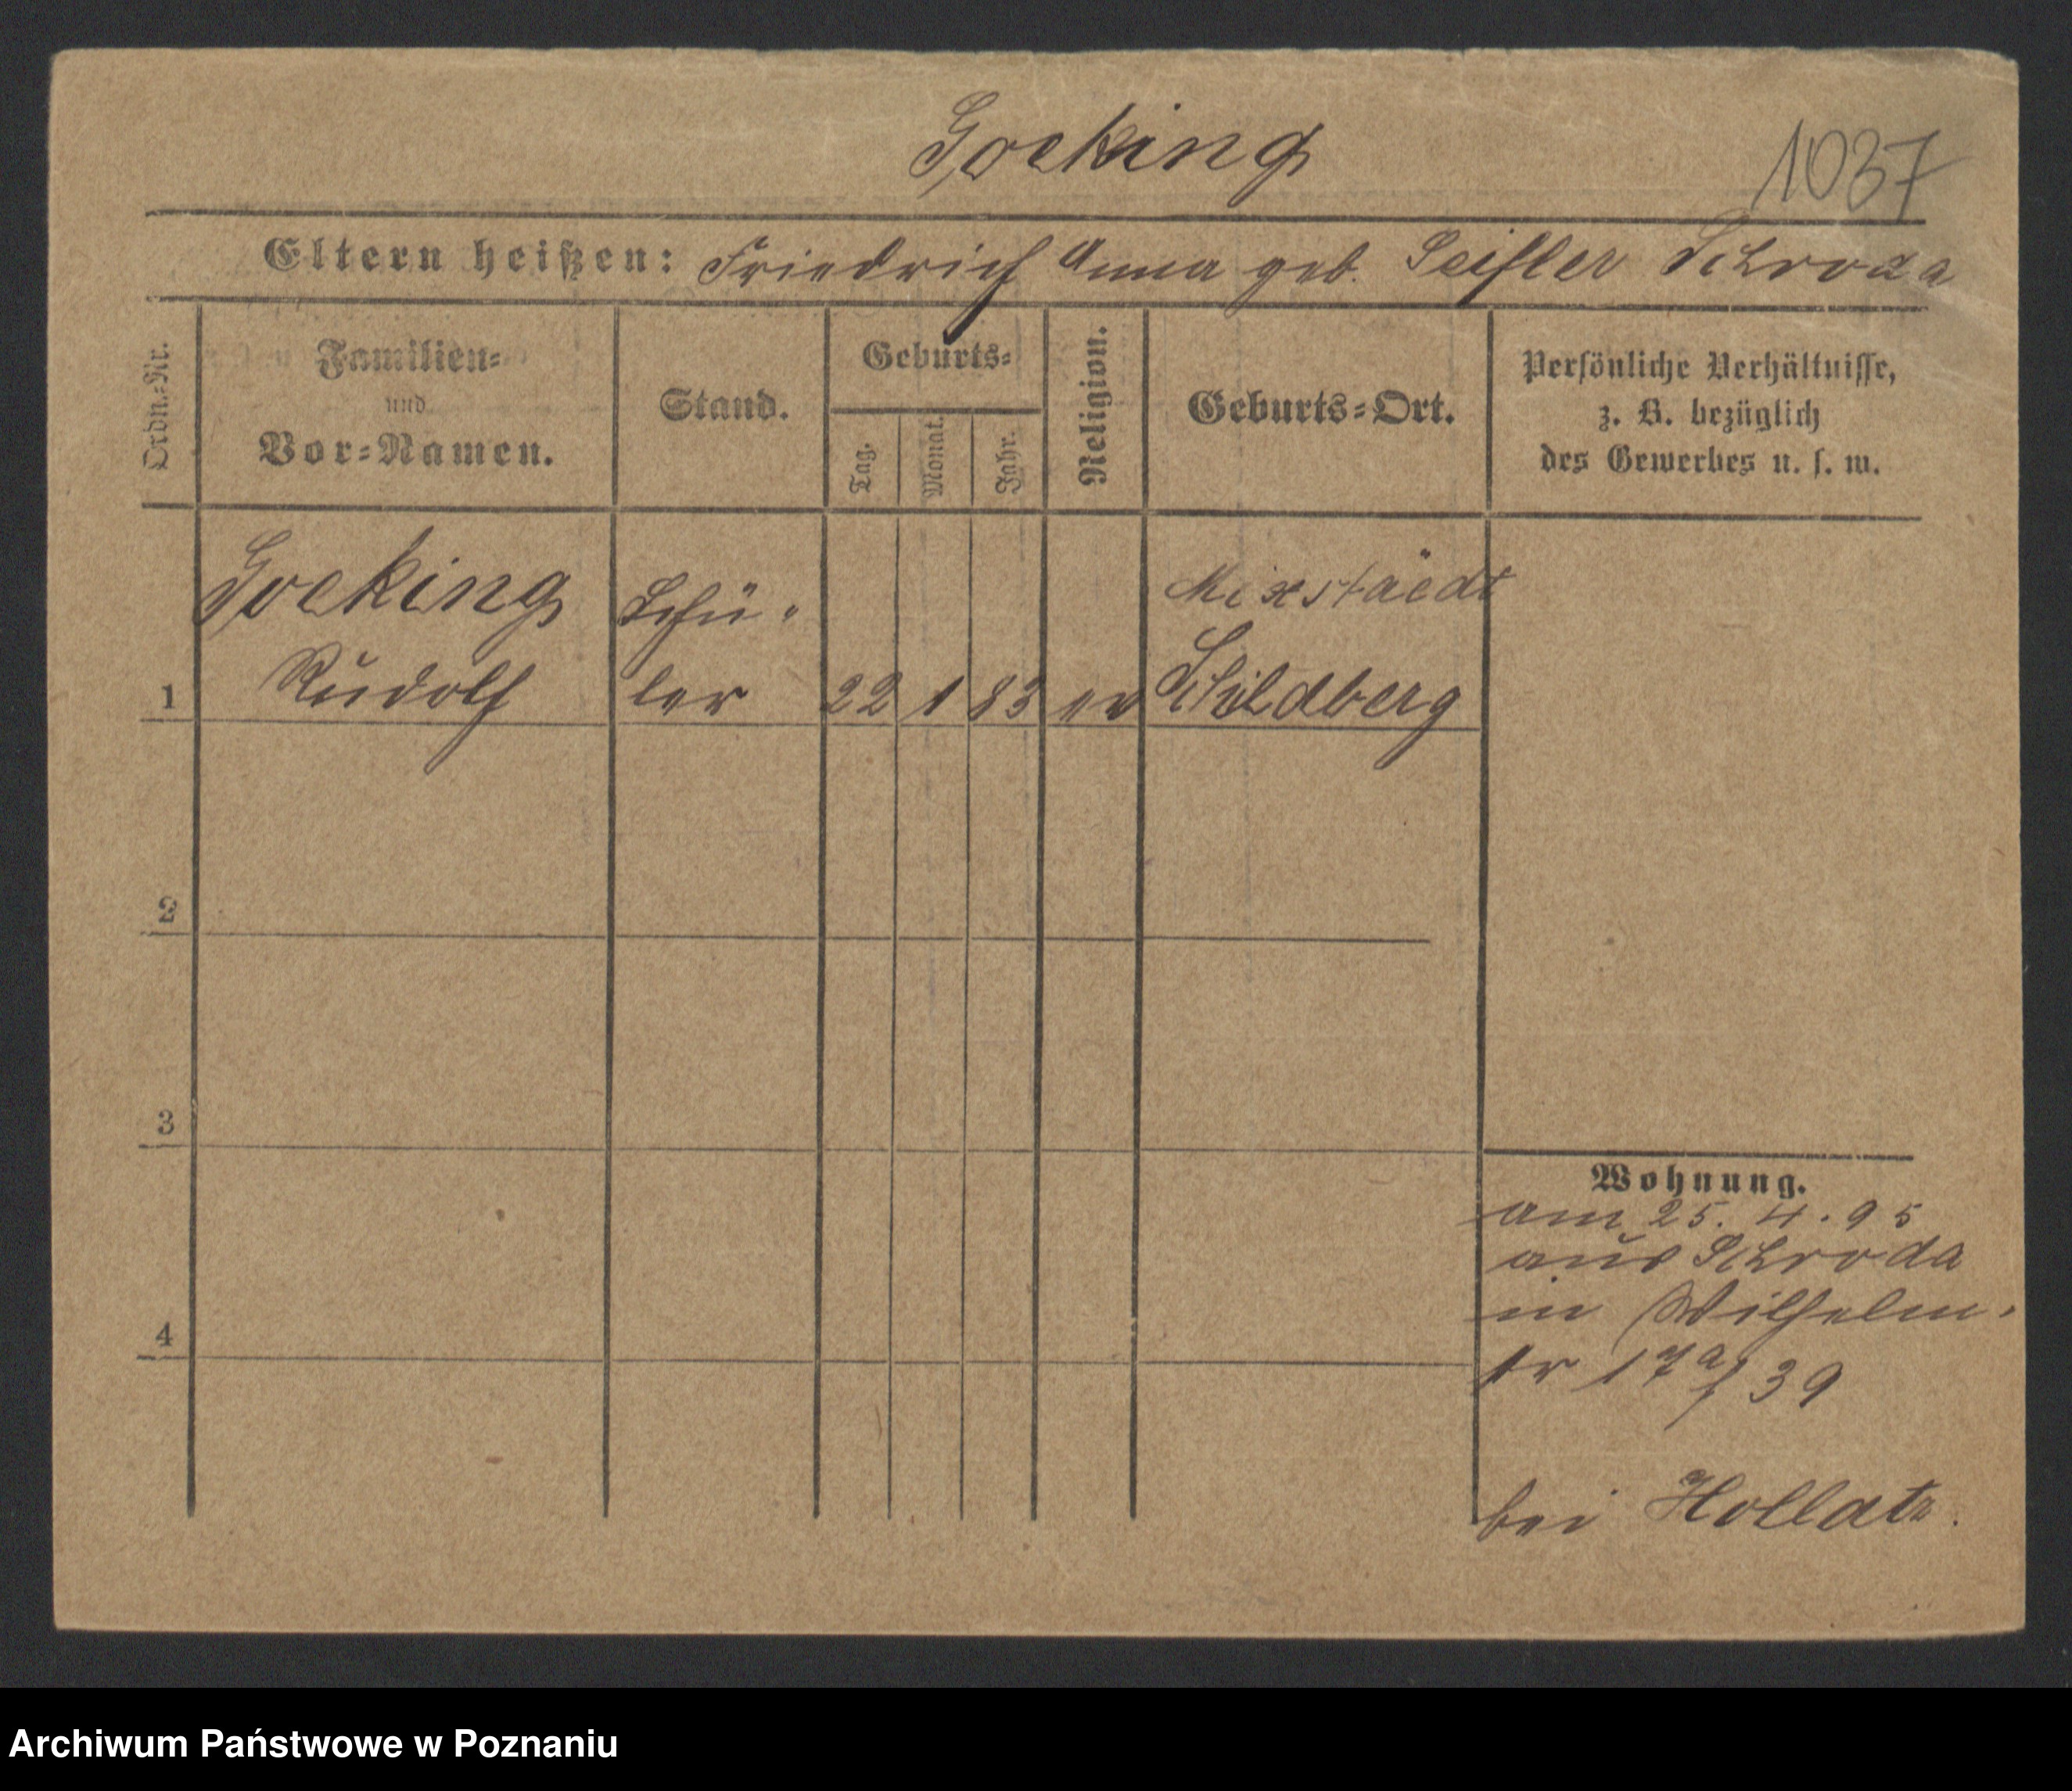 Goeking
1037
Eltern heißen: Friedrich Anna geb. Seifler Schroda
Ordn.-Nr.
Familien-
und
Vor-Namen.
Stand.
Geburts-
Tag.
Monat.
Jahr.
Religion.
Geburts-Ort.
Persönliche Verhältnisse,
z. B. bezüglich
des Gewerbes u. s. w.
Goeking Schü- Mixstaedt
1 Rudolf ler 22 1 83 ev Schildberg
2
3
4
Wohnung.
am 25. 4. 95
aus Schroda
in Wilhelm-
str 17a/39
bei Hollatz.
Archiwum Państwowe w Poznaniu